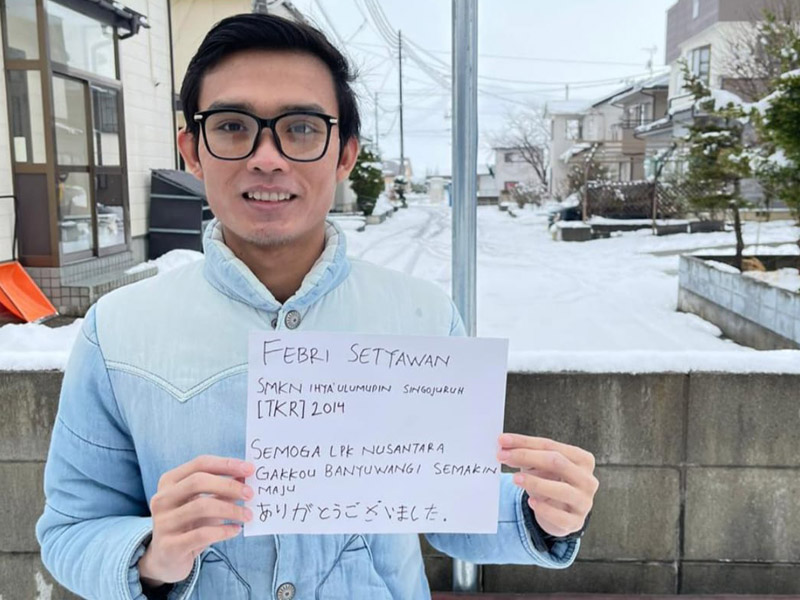 FEBRI SETYAWAN
SMKN IHYA'ULUMUDIN SINGOJURUH
[TKR] 2014
SEMOGA LPK NUSANTARA
GAKKOU BANYUWANGI SEMAKIN
MAJU
ありがとうございました.